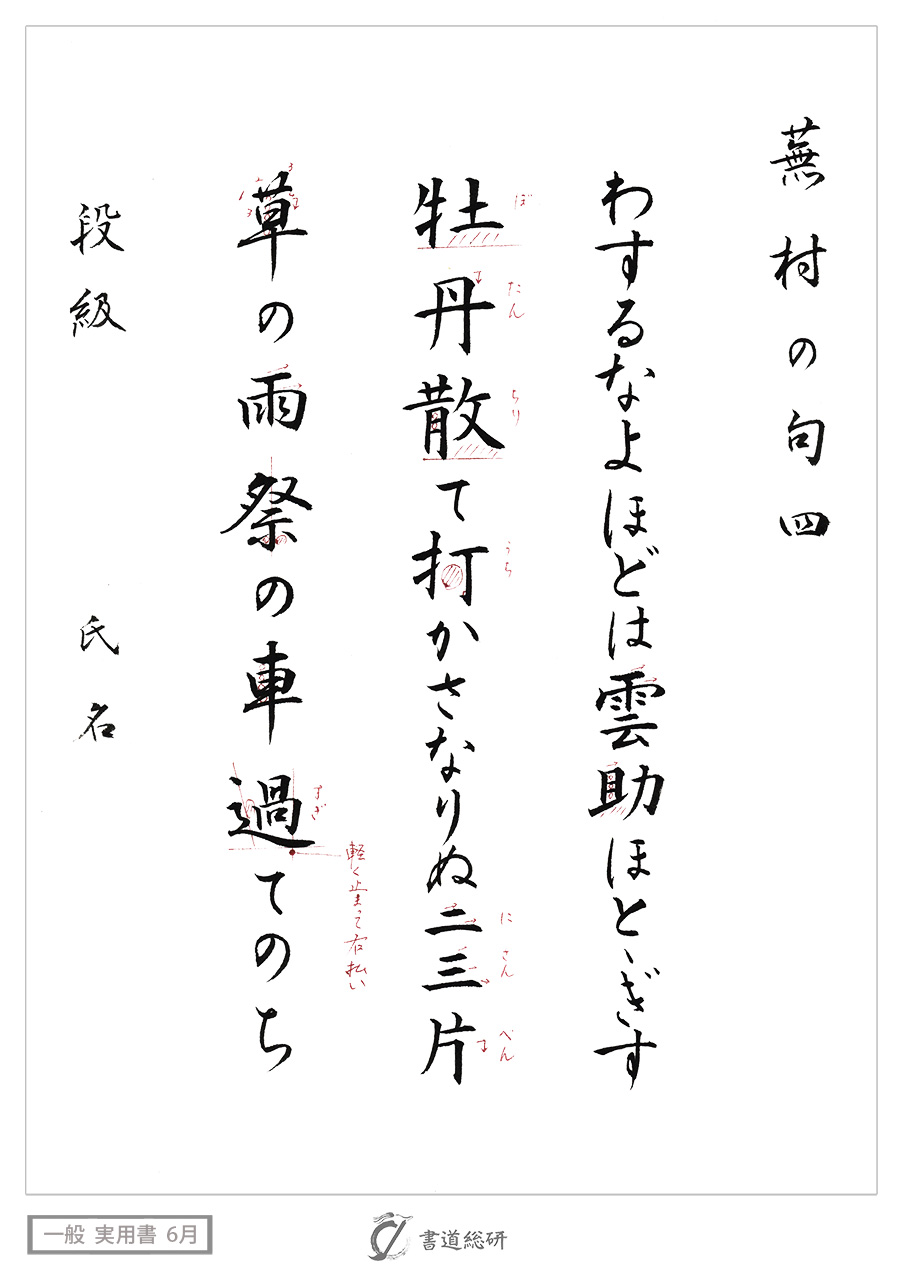 蕪村の句四
わすするなよほどは雲助ほとゝぎす
牡丹散て打かさなりぬ二三片
ぼ
たん
ちり
うち
に
さん
べん
草の雨祭の車過てのち
すぎ
軽く止まって右払い
段級 氏名
一般 実用書 6月
書道総研